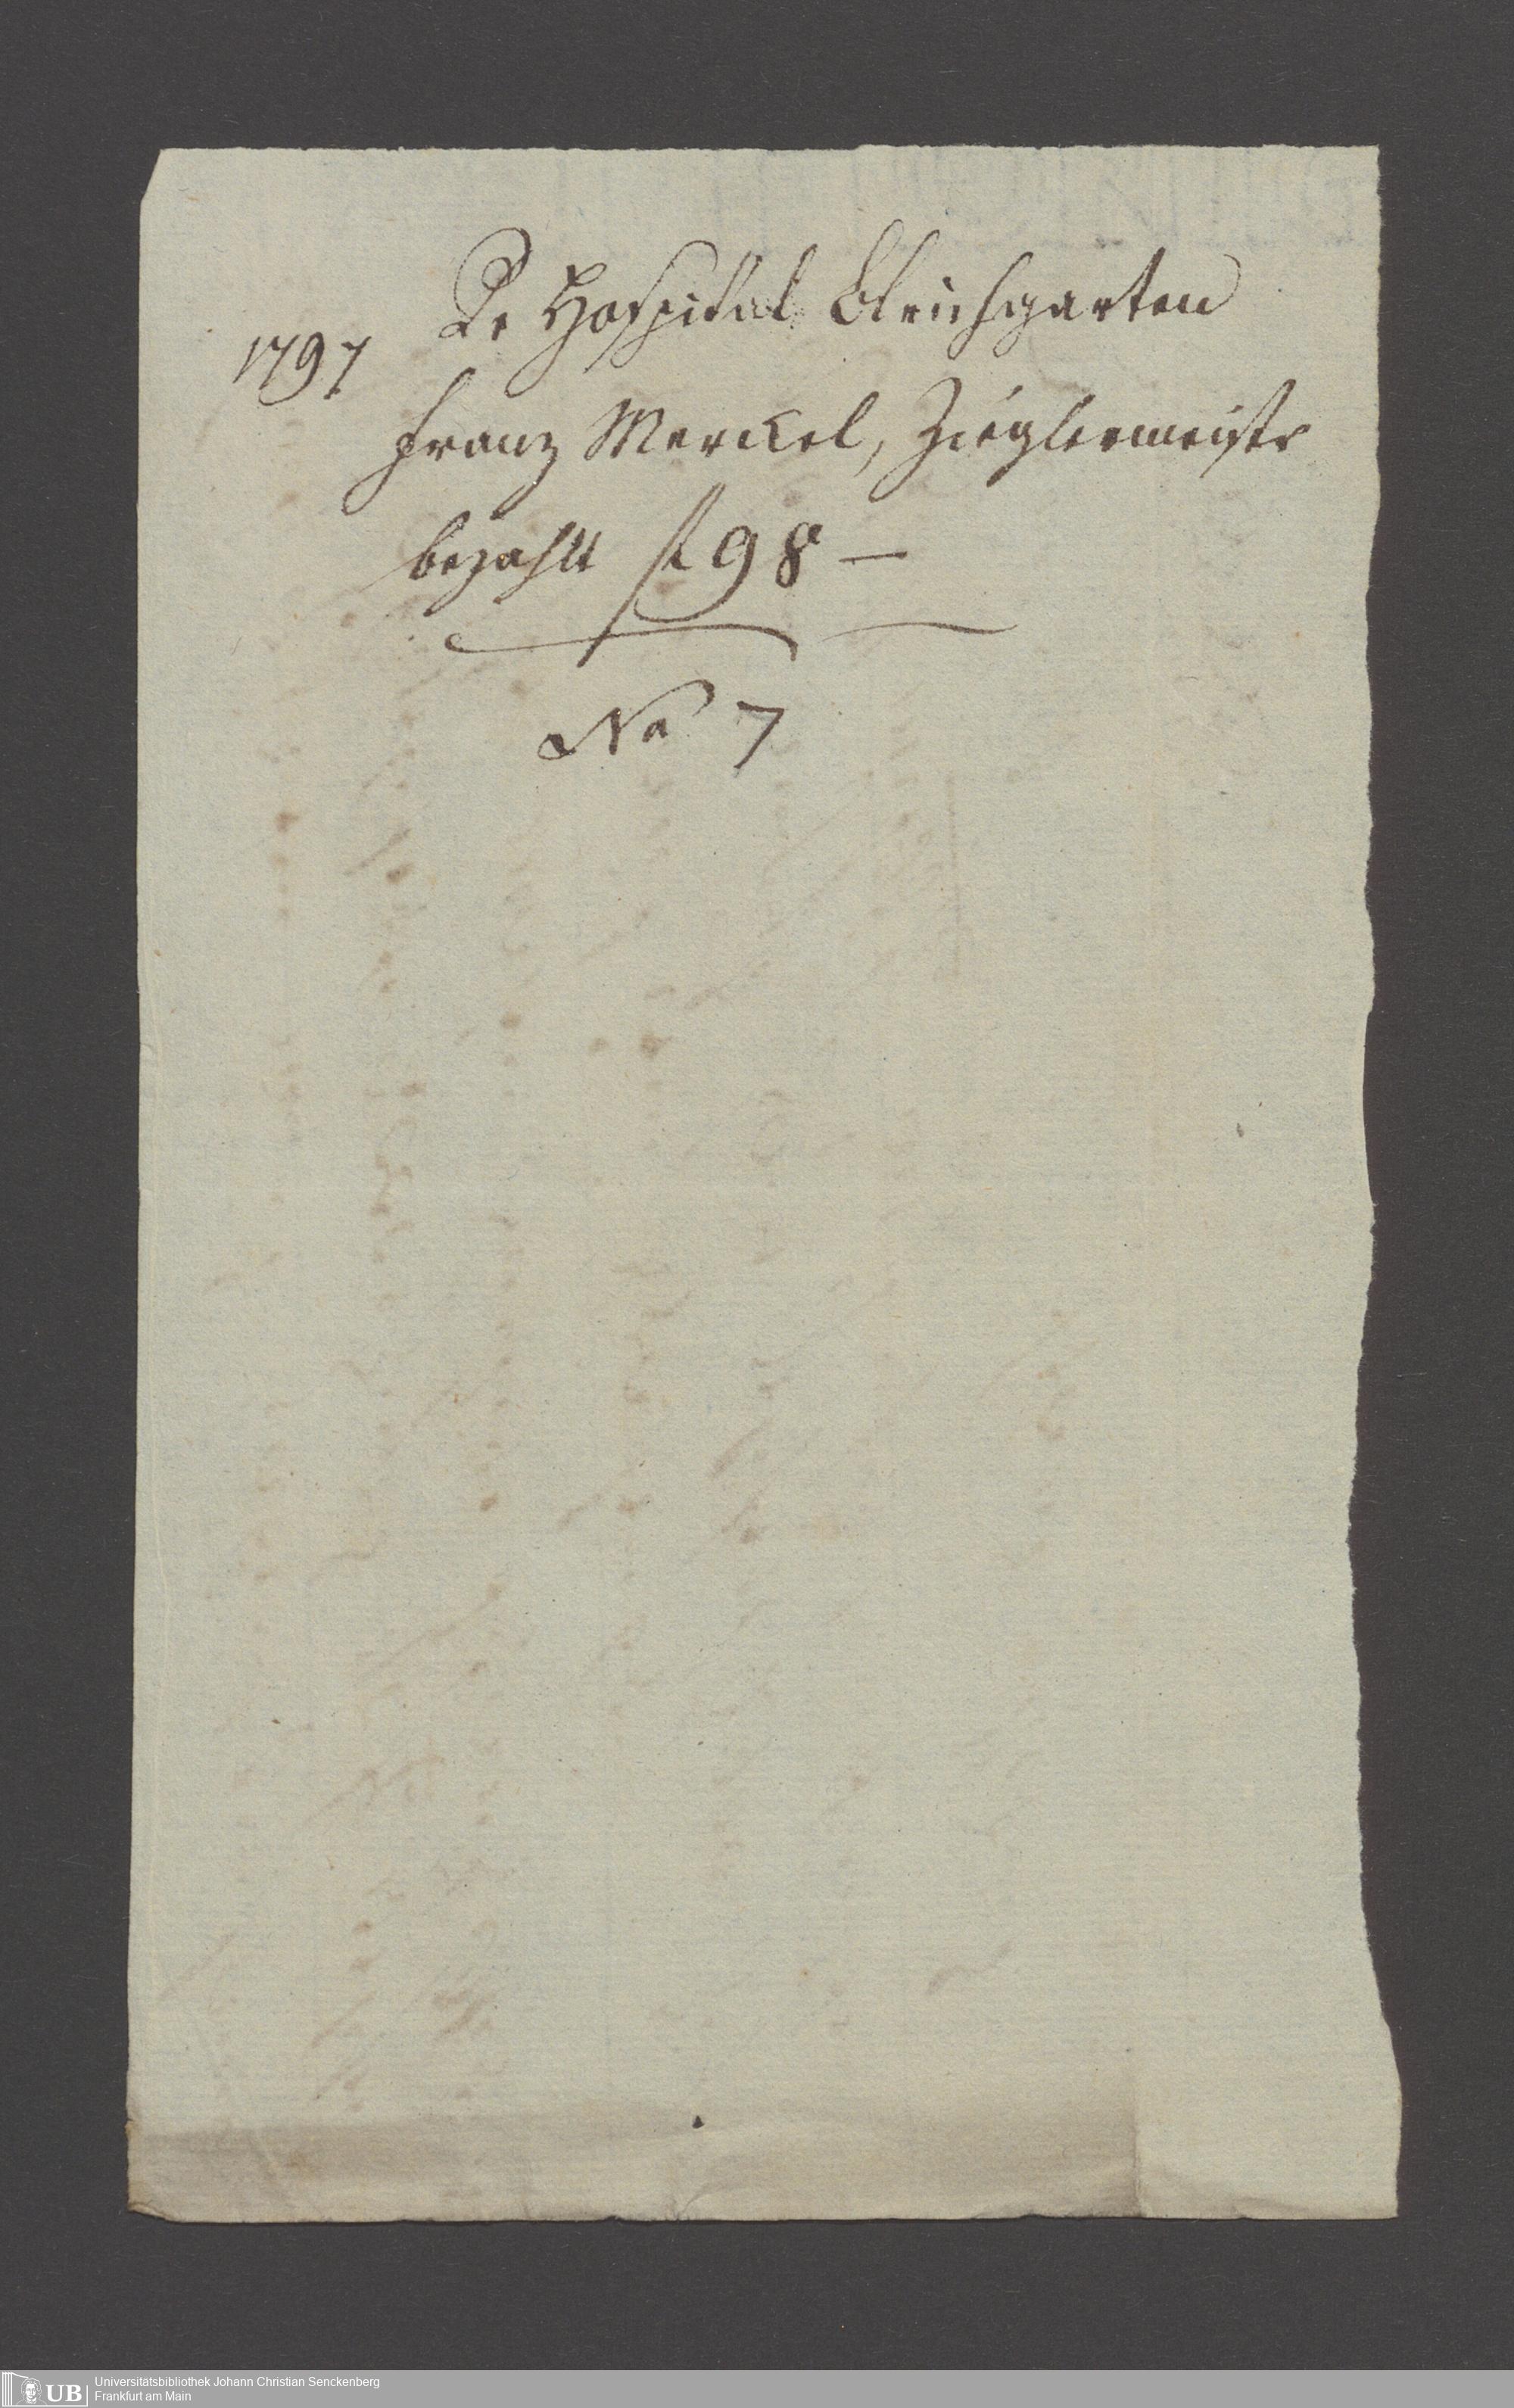 De Hospital Bleichgarten
1797
Franz Merckel, Zieglermeistr
bezahlt fl 98 —
No 7
UB
Universitätsbibliothek Johann Christian Senckenberg
Frankfurt am Main